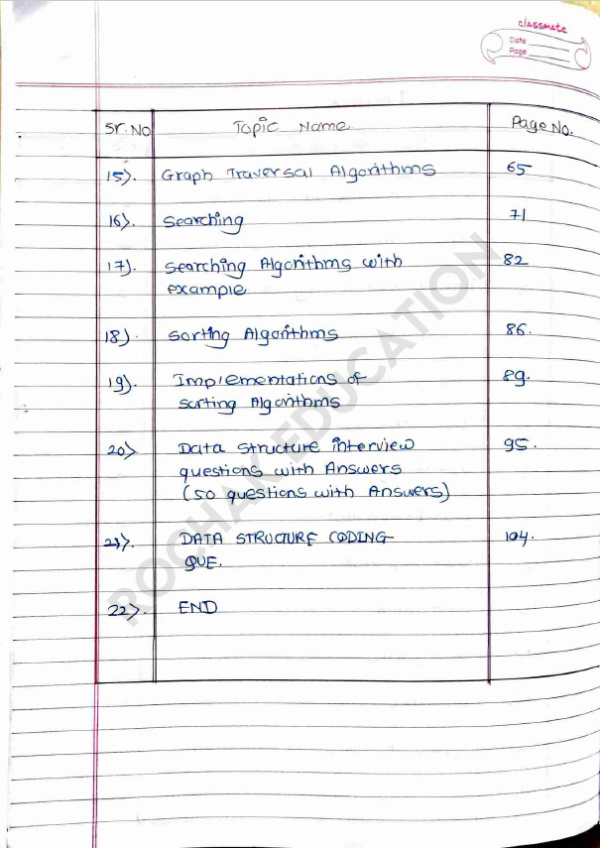 classmate
Date
Page
Sr. No Topic Name Page No.
15). Graph Traversal Algorithms 65
16). Searching 71
17). Searching Algorithms with 82
example
18). Sorting Algorithms 86.
19). Implementations of 89.
Sorting Algorithms
20). Data Structure interview 95.
questions with Answers
(50 questions with Answers)
21). DATA STRUCTURE CODING 104.
QUE.
22). END
ROCHAK EDUCATION